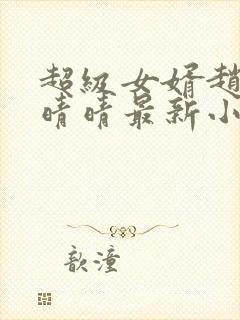 超级女婿趙
晴晴最新小
歆潼